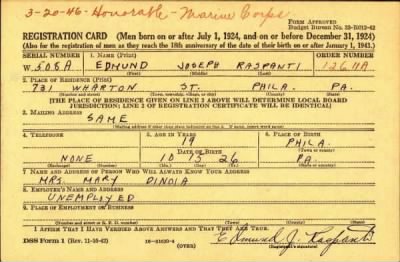 3-20-46 - Honorable - Marine Corps
Form Approved
Budget Bureau No. 33-R013-42
REGISTRATION CARD (Men born on or after July 1, 1924, and on or before December 31, 1924)
(Also for the registration of men as they reach the 18th anniversary of the date of their birth on or after January 1, 1943.)
SERIAL NUMBER 1. NAME (Print) ORDER NUMBER
W 508A EDMUND JOSEPH RASPANTI 12611A
(First) (Middle) (Last)
2. PLACE OF RESIDENCE (Print)
731 WHARTON ST. PHILA. PA.
(Number and street) (Town, township, village, or city) (County) (State)
[THE PLACE OF RESIDENCE GIVEN ON LINE 2 ABOVE WILL DETERMINE LOCAL BOARD
JURISDICTION; LINE 2 OF REGISTRATION CERTIFICATE WILL BE IDENTICAL]
3. MAILING ADDRESS
SAME
[Mailing address if other than place indicated on line 2. If same, insert word same]
4. TELEPHONE 5. AGE IN YEARS 6. PLACE OF BIRTH
19 PHILA.
DATE OF BIRTH
NONE 10 15 26 PA.
(Exchange) (Number) (Mo.) (Day) (Yr.) (State or country)
7. NAME AND ADDRESS OF PERSON WHO WILL ALWAYS KNOW YOUR ADDRESS
MRS. MARY DINOIA
8. EMPLOYER'S NAME AND ADDRESS
UNEMPLOYED
9. PLACE OF EMPLOYMENT OR BUSINESS
(Number and street or R. F. D. number) (Town) (County) (State)
I AFFIRM THAT I HAVE VERIFIED ABOVE ANSWERS AND THAT THEY ARE TRUE.
DSS Form 1 (Rev. 11-16-42) 16-21630-4 (OVER) Edmund J. Raspanti
(Registrant's signature)